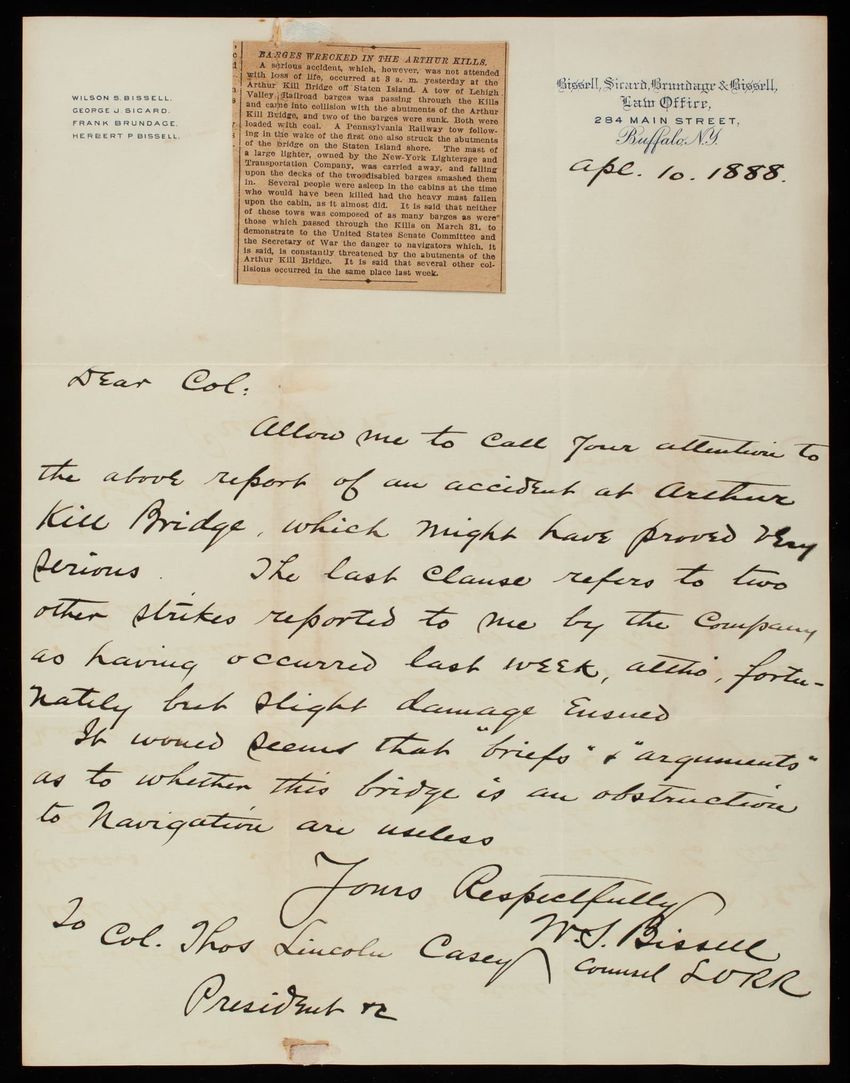 WILSON S. BISSELL.
GEORGE J. SICARD.
FRANK BRUNDAGE.
HERBERT P. BISSELL.
BARGES WRECKED IN THE ARTHUR KILLS.
A serious accident, which, however, was not attended
with loss of life, occurred at 3 a. m. yesterday at the
Arthur Kill Bridge off Staten Island. A tow of Lehigh
Valley Railroad barges was passing through the Kills
and came into collision with the abutments of the Arthur
Kill Bridge, and two of the barges were sunk. Both were
loaded with coal. A Pennsylvania Railway tow follow-
ing in the wake of the first one also struck the abutments
of the bridge on the Staten Island shore. The mast of
a large lighter, owned by the New-York Lighterage and
Transportation Company, was carried away, and falling
upon the decks of the two disabled barges smashed them
in. Several people were asleep in the cabins at the time
who would have been killed had the heavy mast fallen
upon the cabin, as it almost did. It is said that neither
of these tows was composed of as many barges as were
those which passed through the Kills on March 31, to
demonstrate to the United States Senate Committee and
the Secretary of War the danger to navigators which, it
is said, is constantly threatened by the abutments of the
Arthur Kill Bridge. It is said that several other col-
lisions occurred in the same place last week.
Bissell, Sicard, Brundage & Bissell,
Law Office,
284 MAIN STREET,
Buffalo, N.Y.
Apl. 10. 1888.
Dear Col:
Allow me to call your attention to
the above report of an accident at Arthur
Kill Bridge, which might have proved very
serious. The last clause refers to two
other strikes reported to me by the Company
as having occurred last week, altho', fortu-
nately but slight damage ensued
It would seem that "briefs" & "arguments"
as to whether this bridge is an obstruction
to Navigation are useless
Yours Respectfully
W. S. Bissell
Counsel LVRR
To
Col. Thos Lincoln Casey
President &c